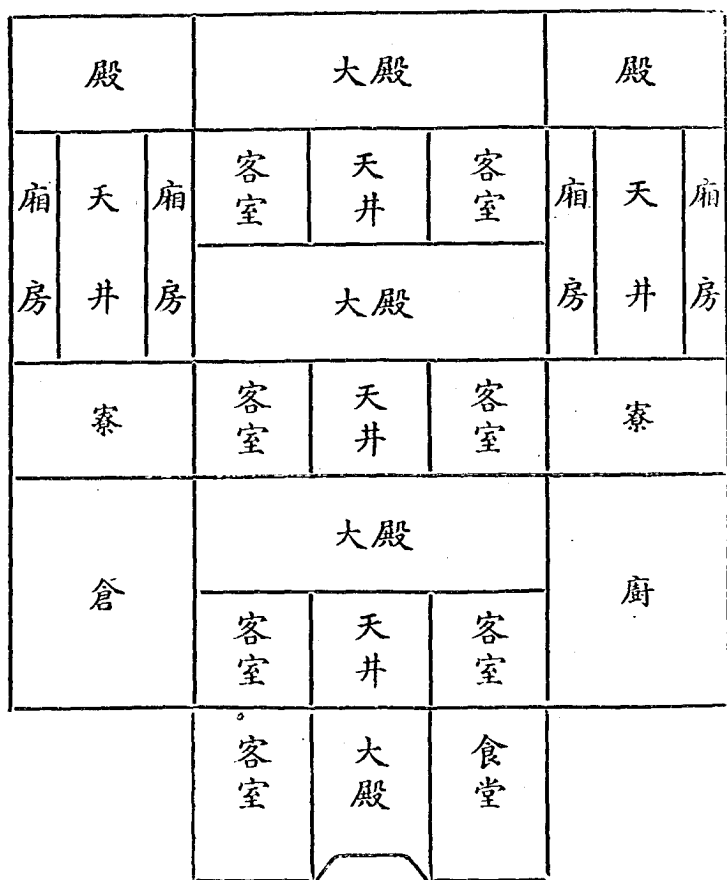 殿
大殿
殿
廂房
天井
廂房
客室
天井
客室
廂房
天井
廂房
大殿
寮
客室
天井
客室
寮
倉
大殿
廚
客室
天井
客室
客室
大殿
食堂